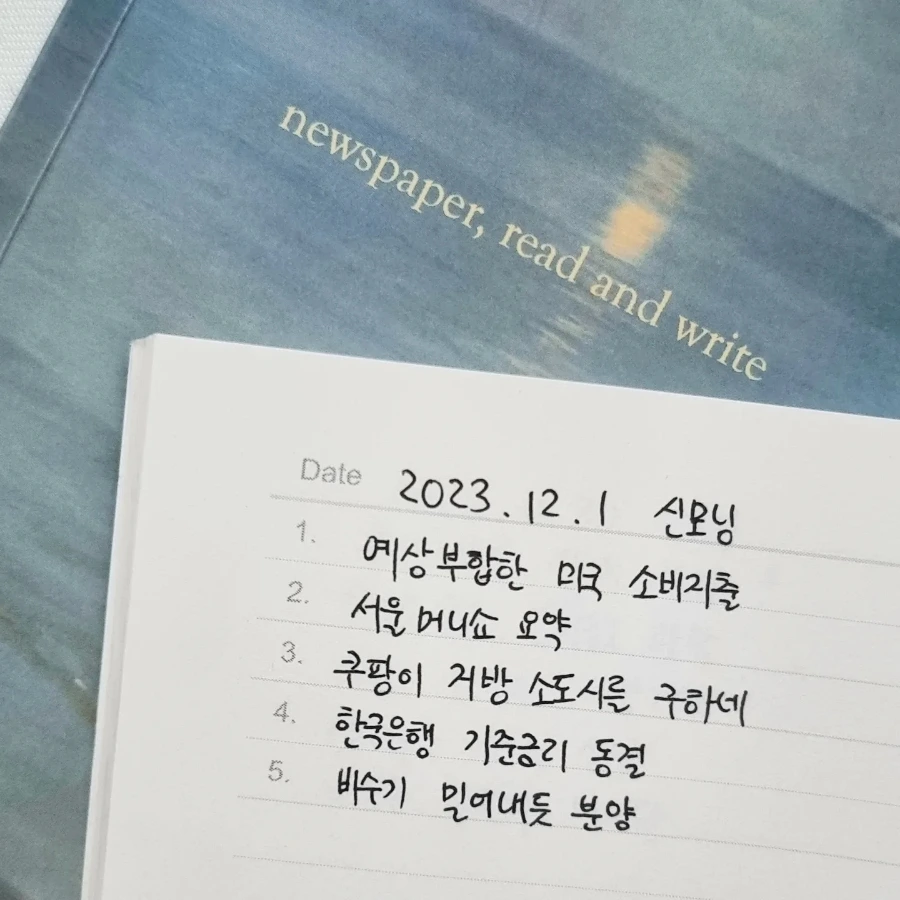 newspaper, read and write
Date 2023.12.1 신모닝
1. 예상 부합한 미국 소비지출
2. 서울머니쇼 요약
3. 쿠팡이 지방 소도시를 구하네
4. 한국은행 기준금리 동결
5. 비수기 밀어내듯 분양